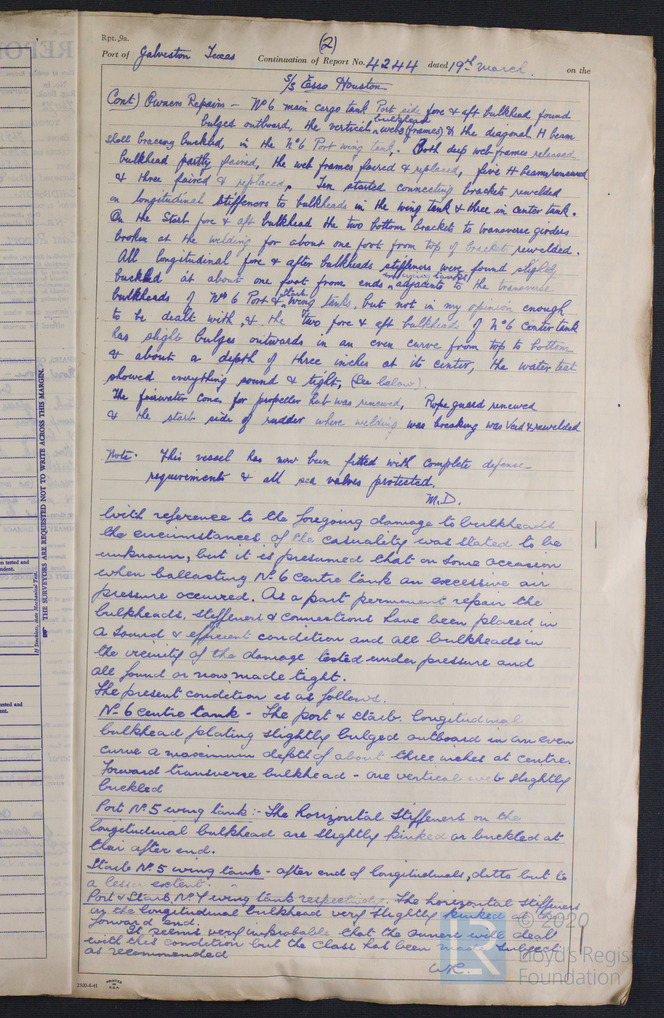 Rpt. 9a.
(2)
Port of Galveston Texas Continuation of Report No. 4244 dated 19th March. on the
S/S Esso Houston
Cont) Owners Repairs - No 6 main cargo tank Port side fore & aft bulkhead found
bulkhead
bulges outboard, the vertical webs (frames) & the diagonal H beam
strut bracing buckled, in the No 6 Port wing tank. Both deep web frames released
bulkhead partly faired, the web frames faired & replaced, five H beams renewed
& three faired & replaced. Ten started connecting brackets rewelded
on longitudinal stiffeners to bulkheads in the wing tank & three in center tank.
On the Starb fore & aft bulkhead the two bottom brackets to transverse girders
broken at the welding for about one foot from top of bracket rewelded.
All longitudinal fore & after bulkheads stiffeners were found slightly
in wing tanks
buckled at about one foot from ends adjacent to the transverse
starb
bulkheads of No 6 Port & wing tanks, but not in my opinion enough
to be dealt with, & the two fore & aft bulkheads of No 6 center tank
has slight bulges outwards in an even curve from top to bottom
& about a depth of three inches at its center, the water test
showed everything sound & tight, (See below).
The fairwater cone for propeller hub was renewed, Rope guard renewed
& the starb side of rudder where welding was breaking was Veed & rewelded
Note. This vessel has now been fitted with complete defense
requirements & all sea valves protected.
M.D.
With reference to the foregoing damage to bulkheads
the circumstances of the casuality was stated to be
unknown, but it is presumed that on some occasion
when ballasting No 6 centre tank an excessive air
pressure occurred. As a part permanent repair the
bulkheads, stiffeners & connections have been placed in
a sound & efficient condition and all bulkheads in
the vicinity of the damage tested under pressure and
all found or now made tight.
The present condition is as follows.
No 6 centre tank - The port & starb. longitudinal
bulkhead plating slightly bulged outboard in an even
curve a maximum depth of about three inches at centre.
Forward transverse bulkhead - one vertical web slightly
buckled
Port No. 5 wing tank :- The horizontal stiffeners on the
longitudinal bulkhead are slightly kinked or buckled at
their after end.
Starb No. 5 wing tank - after end of longitudinals, ditto but to
a lesser extent.
Port & Starb. No. 7 wing tank respectively. The horizontal stiffeners
on the longitudinal bulkhead very slightly kinked at the
forward end.
It seems very improbable that the owners will deal
with this condition but the class has been made subject
as recommended
THE SURVEYORS ARE REQUESTED NOT TO WRITE ACROSS THIS MARGIN.
2500-6-41
PRINTED IN U.S.A.
© 2020
Lloyd's Register
Foundation